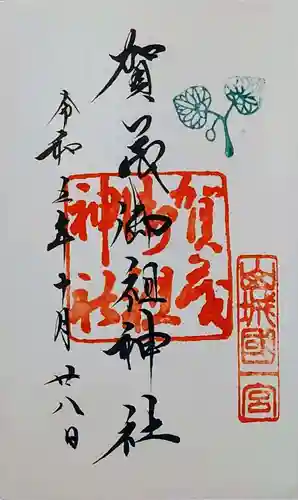 賀茂御祖神社
令和五年十月廿八日
賀茂
御祖
神社
山城國一宮